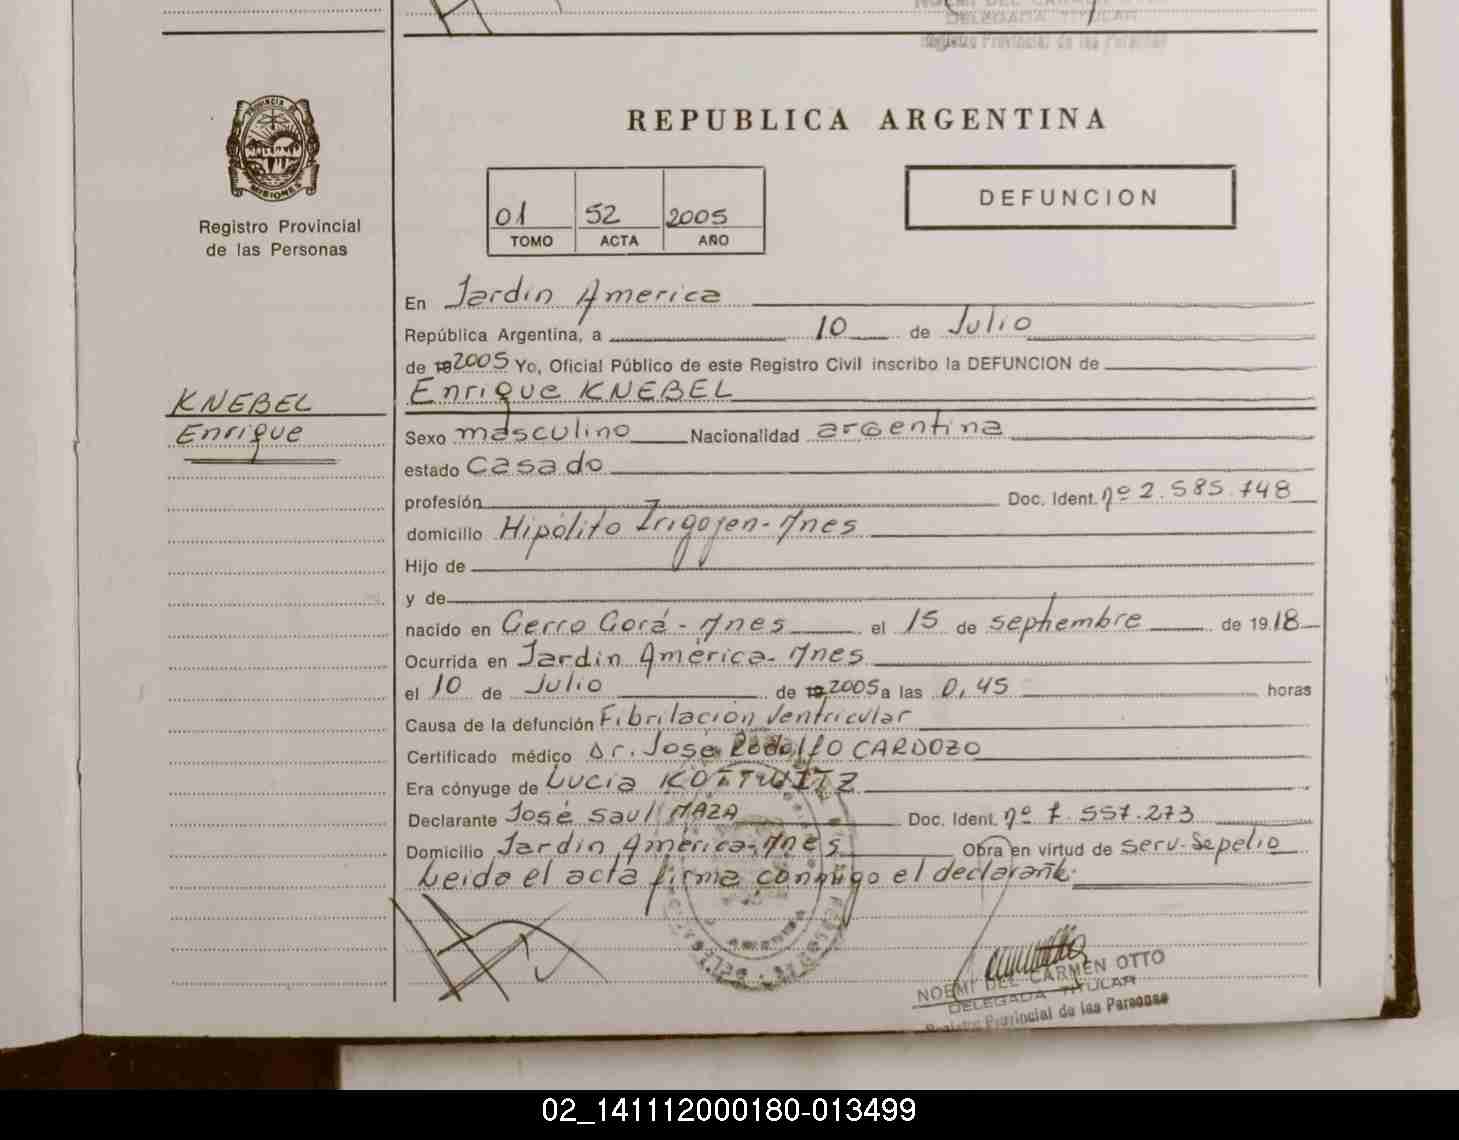 NOEMI DEL CARMEN OTTO
DELEGADA TITULAR
Registro Provincial de las Personas
PROVINCIA DE
MISIONES
Registro Provincial
de las Personas
REPUBLICA ARGENTINA
01 52 2005
TOMO ACTA AÑO
DEFUNCION
En Jardin America
República Argentina, a 10 de Julio
de 19 2005 Yo, Oficial Público de este Registro Civil inscribo la DEFUNCION de
Enrique KNEBEL
KNEBEL
Enrique
Sexo masculino Nacionalidad argentina
estado Casado
profesión Doc. Ident. nº 2.585.748
domicilio Hipólito Irigojen-Mnes
Hijo de
y de
nacido en Cerro Corá - Mnes el 15 de septhembre de 19 18
Ocurrida en Jardin América- Mnes
el 10 de Julio de 19 2005 a las 0,45 horas
Causa de la defunción Fibrilación Ventricular
Certificado médico Dr. José Rodolfo CARDOZO
Era cónyuge de Lucia KOTTWITZ
Declarante José Saul MAZA Doc. Ident. nº 7.557.273
Domicilio Jardin América-Mnes Obra en virtud de serv-Sepelio
Leida el acta firma conmigo el declarante.
NOEMI DEL CARMEN OTTO
DELEGADA TITULAR
Registro Provincial de las Personas
02_141112000180-013499